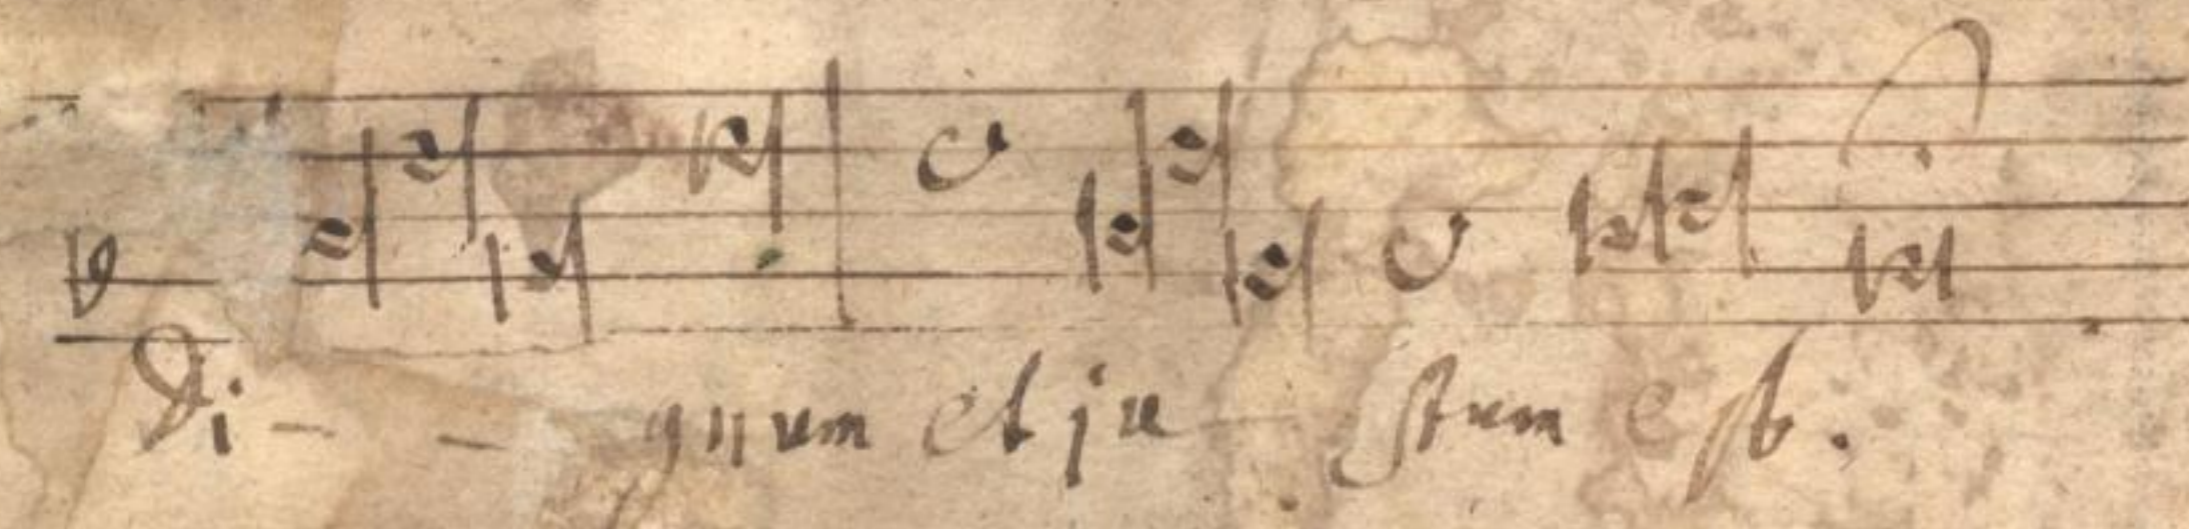 Di - - gnum et ju - stum est.